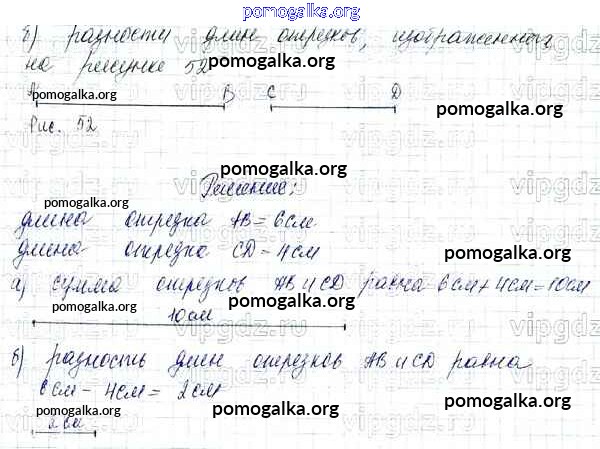 pomogalka.org
б) разности длин отрезков, изображенных
на рисунке 52
pomogalka.org
A B C D
pomogalka.org pomogalka.org
pomogalka.org
Рис. 52
vipgdz.ru
pomogalka.org
Решение:
pomogalka.org
длина отрезка AB = 6см
длина отрезка CD = 4см
pomogalka.org
а) сумма отрезков AB и CD равна 6см + 4см = 10см
pomogalka.org
10см
pomogalka.org
б) разность длин отрезков AB и CD равна
6см - 4см = 2см
pomogalka.org pomogalka.org
2см
pomogalka.org